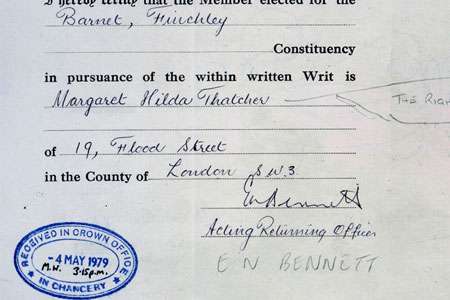 I hereby certify that the Member elected for the
Barnet, Finchley
Constituency
in pursuance of the within written Writ is
Margaret Hilda Thatcher
THE RIG
of 19, Flood Street
in the County of London S.W.3.
EN Bennett
Acting Returning Officer
E N BENNETT
RECEIVED IN CROWN OFFICE
-4 MAY 1979
M.W. 3.15p.m.
IN CHANCERY